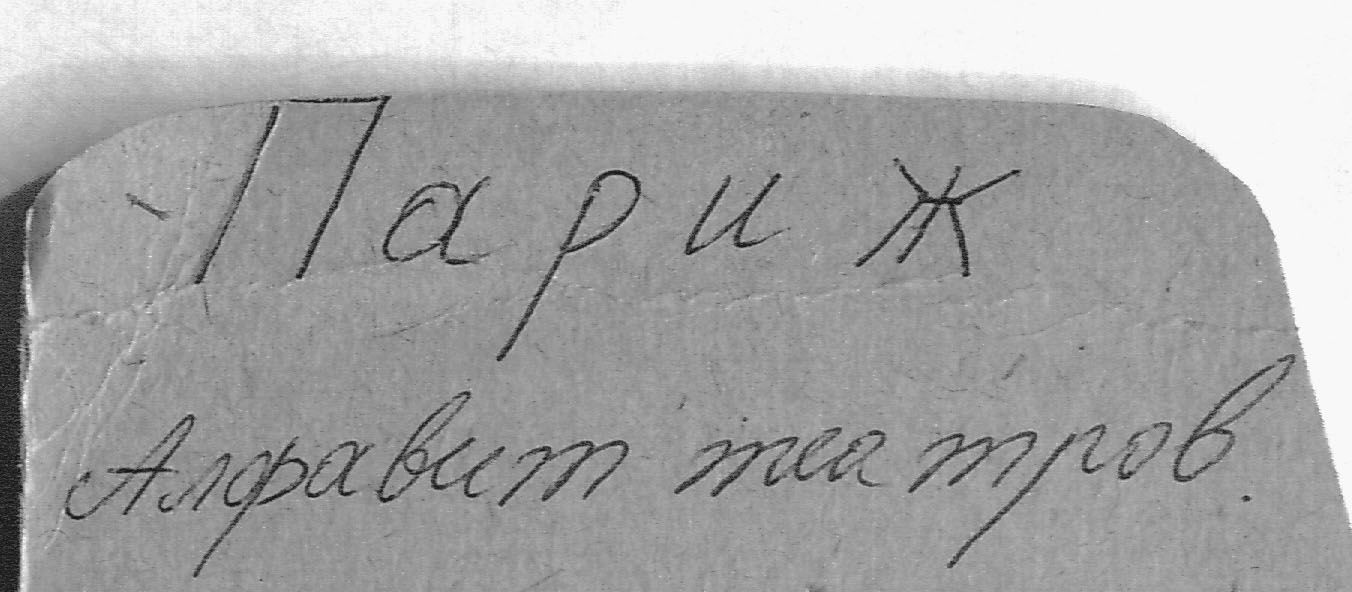 Париж
Алфавит театров.